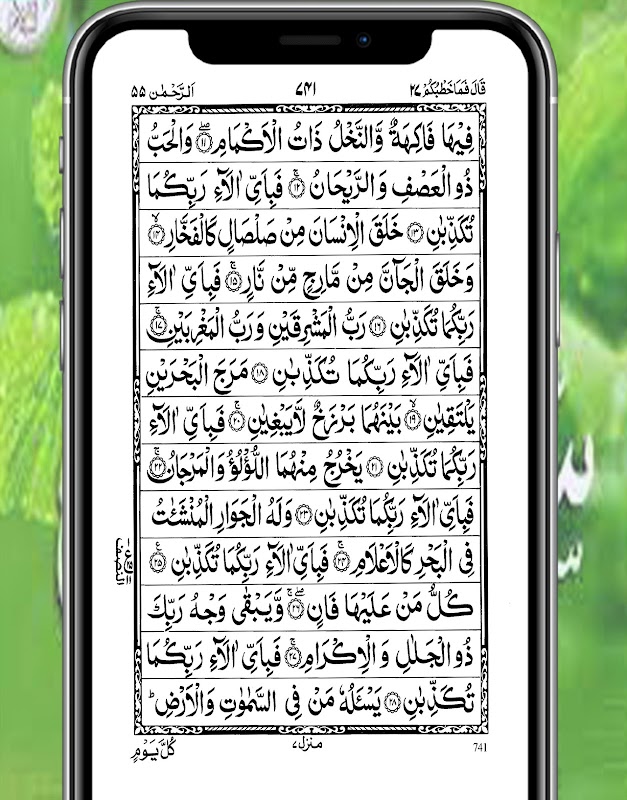 قَالَ فَمَا خَطْبُكُمْ ۲۷ ۷۴۱ اَلرَّحْمٰن ۵۵
فِيْهَا فَاكِهَةٌ وَّالنَّخْلُ ذَاتُ الْاَكْمَامِ ۖ‏ ﴿۱۱﴾ وَالْحَبُّ
ذُو الْعَصْفِ وَالرَّيْحَانُ ۚ‏ ﴿۱۲﴾ فَبِاَيِّ اٰلَآءِ رَبِّكُمَا
تُكَذِّبٰنِ ﴿۱۳﴾ خَلَقَ الْاِنْسَانَ مِنْ صَلْصَالٍ كَالْفَخَّارِ ۙ‏ ﴿۱۴﴾
وَخَلَقَ الْجَآنَّ مِنْ مَّارِجٍ مِّنْ نَّارٍ ۚ‏ ﴿۱۵﴾ فَبِاَيِّ اٰلَآءِ
رَبِّكُمَا تُكَذِّبٰنِ ﴿۱۶﴾ رَبُّ الْمَشْرِقَيْنِ وَرَبُّ الْمَغْرِبَيْنِ ۚ‏ ﴿۱۷﴾
فَبِاَيِّ اٰلَآءِ رَبِّكُمَا تُكَذِّبٰنِ ﴿۱۸﴾ مَرَجَ الْبَحْرَيْنِ
يَلْتَقِيٰنِ ۙ‏ ﴿۱۹﴾ بَيْنَهُمَا بَرْزَخٌ لَّا يَبْغِيٰنِ ۚ‏ ﴿۲۰﴾ فَبِاَيِّ اٰلَآءِ
رَبِّكُمَا تُكَذِّبٰنِ ﴿۲۱﴾ يَخْرُجُ مِنْهُمَا اللُّؤْلُؤُ وَالْمَرْجَانُ ۚ‏ ﴿۲۲﴾
فَبِاَيِّ اٰلَآءِ رَبِّكُمَا تُكَذِّبٰنِ ﴿۲۳﴾ وَلَهُ الْجَوَارِ الْمُنْشَئٰتُ
فِى الْبَحْرِ كَالْاَعْلَامِ ۚ‏ ﴿۲۴﴾ فَبِاَيِّ اٰلَآءِ رَبِّكُمَا تُكَذِّبٰنِ ۧ‏ ﴿۲۵﴾
كُلُّ مَنْ عَلَيْهَا فَانٍ ۚۖ‏ ﴿۲۶﴾ وَّيَبْقٰى وَجْهُ رَبِّكَ
ذُو الْجَلٰلِ وَالْاِكْرَامِ ۚ‏ ﴿۲۷﴾ فَبِاَيِّ اٰلَآءِ رَبِّكُمَا
تُكَذِّبٰنِ ﴿۲۸﴾ يَسْئَلُهٗ مَنْ فِى السَّمٰوٰتِ وَالْاَرْضِ ؕ
كُلَّ يَوْمٍ منزل ۷ 741
النصف